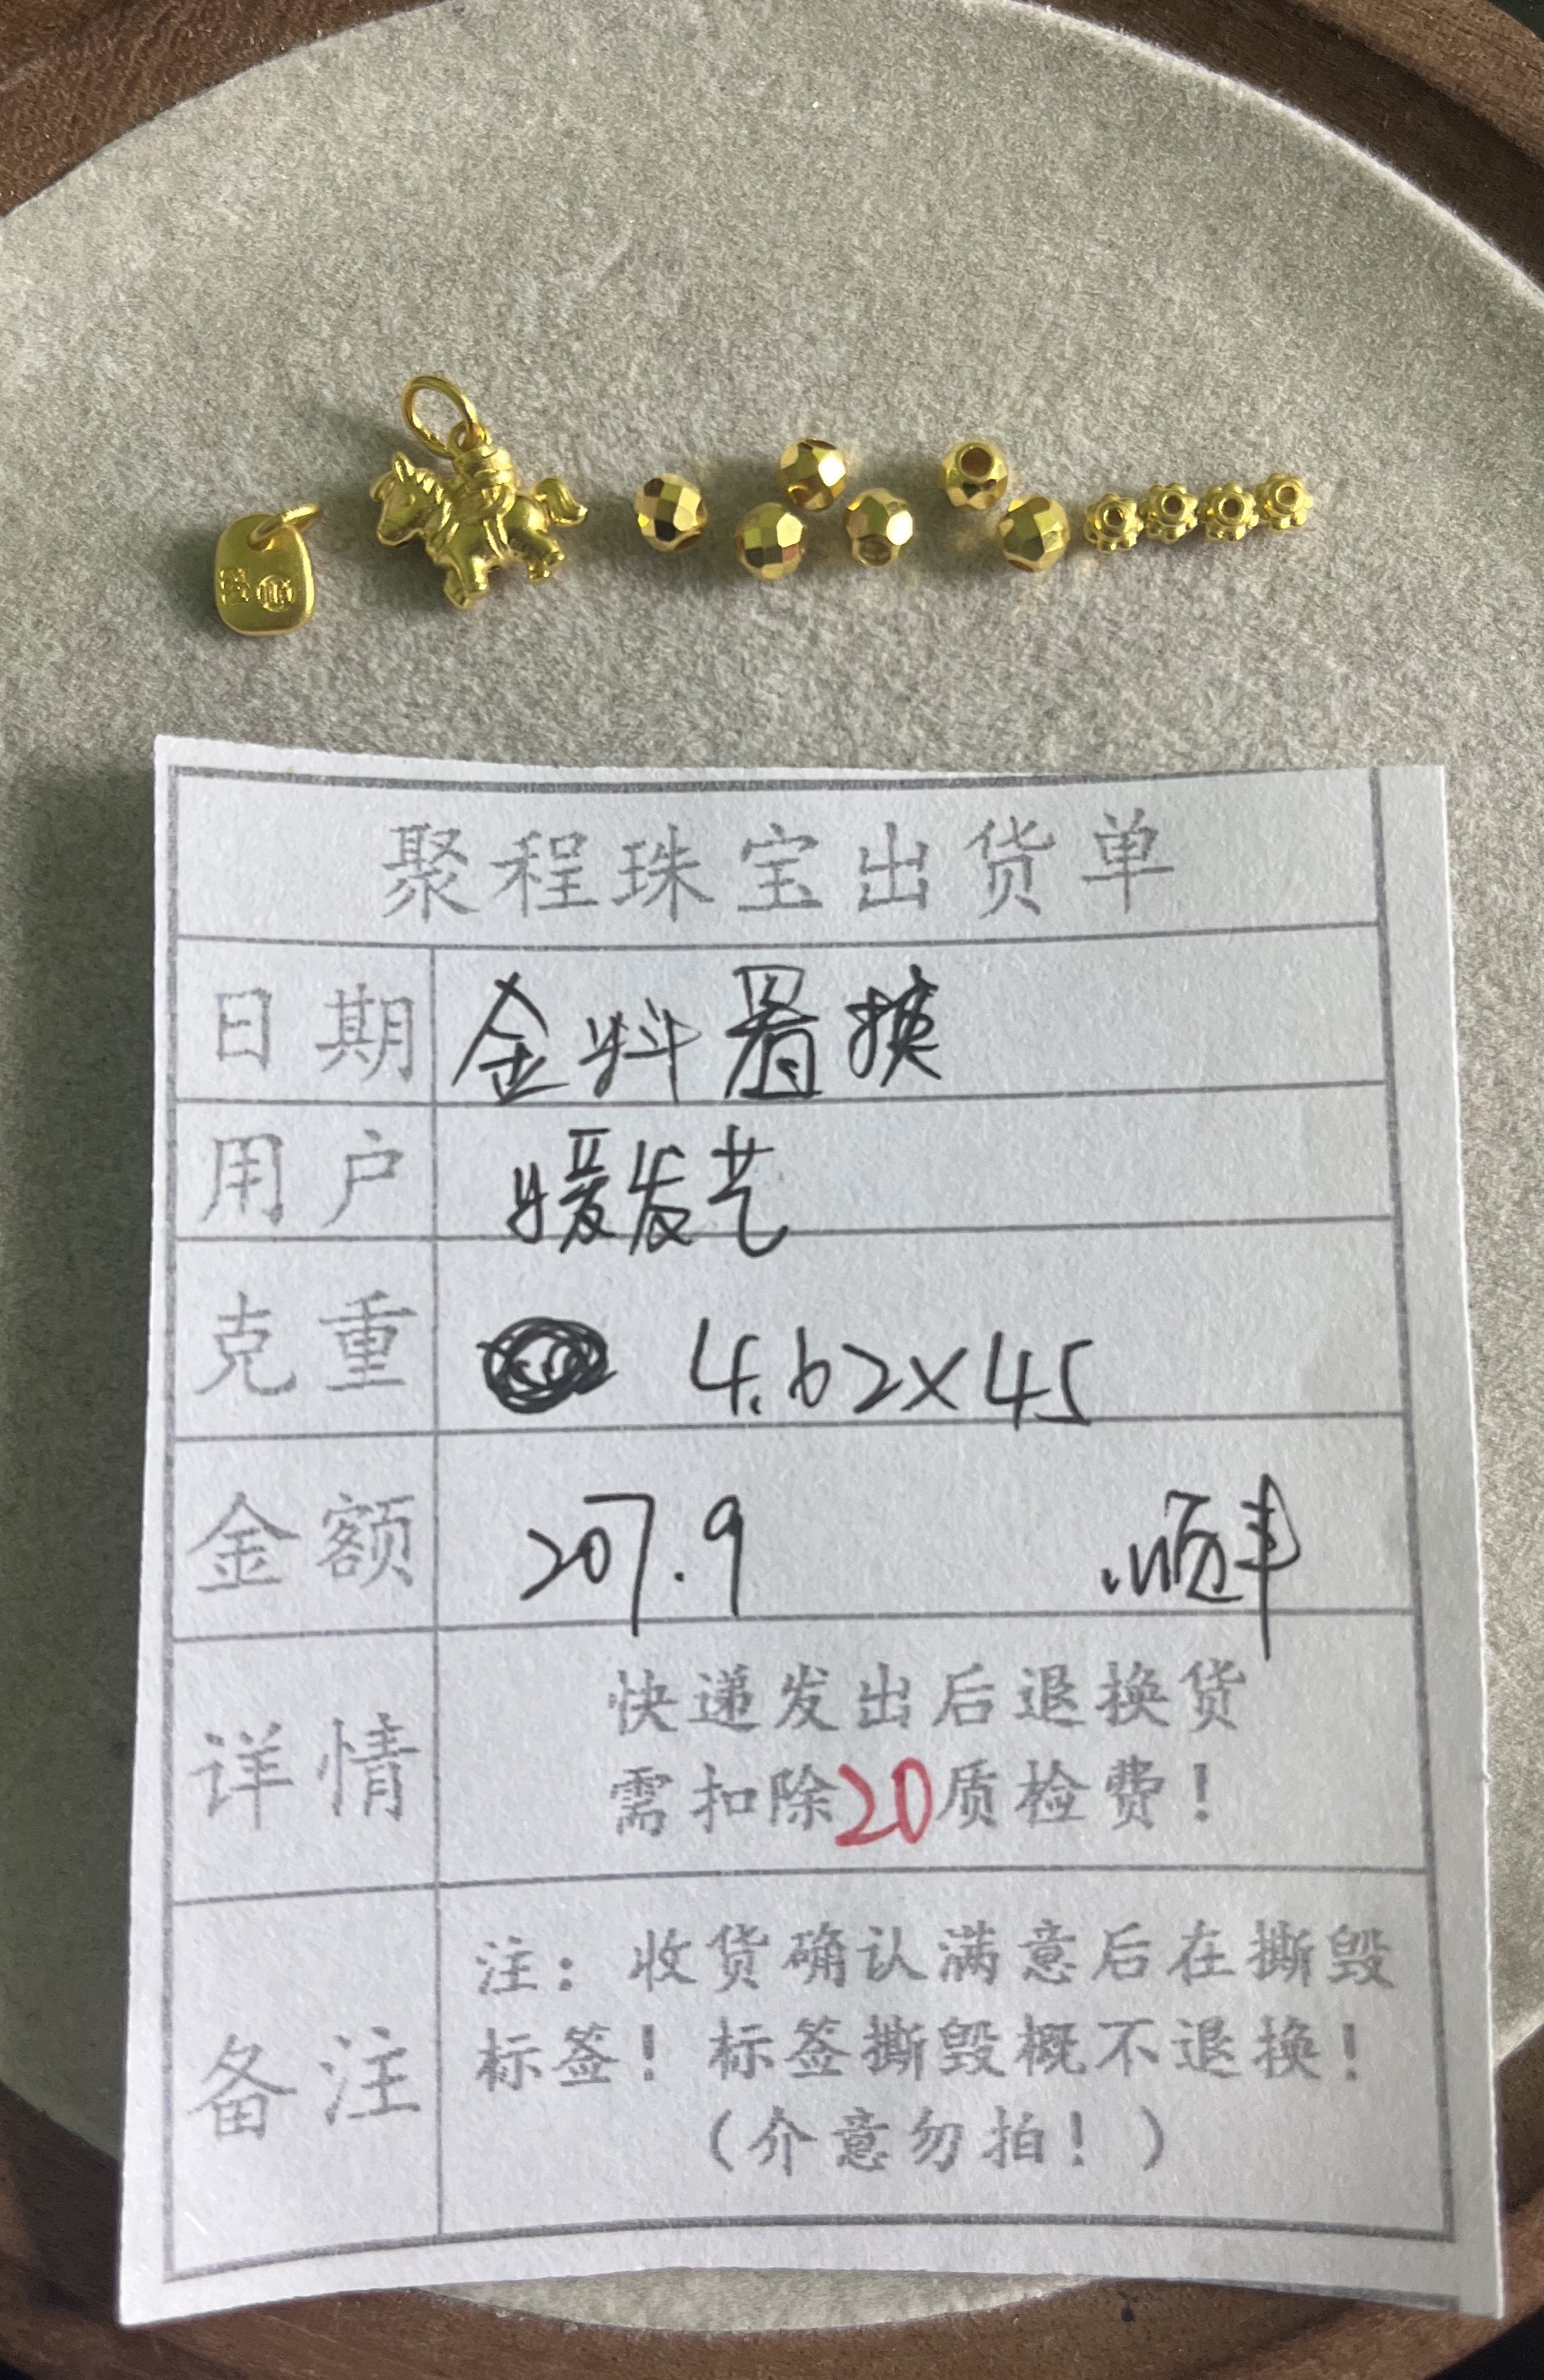 聚程珠宝出货单
日期 金料置换
用户 媛发艺
克重 4.62×45
金额 207.9 顺丰
详情 快递发出后退换货
需扣除20质检费！
备注 注：收货确认满意后在撕毁
标签！标签撕毁概不退换！
（介意勿拍！）